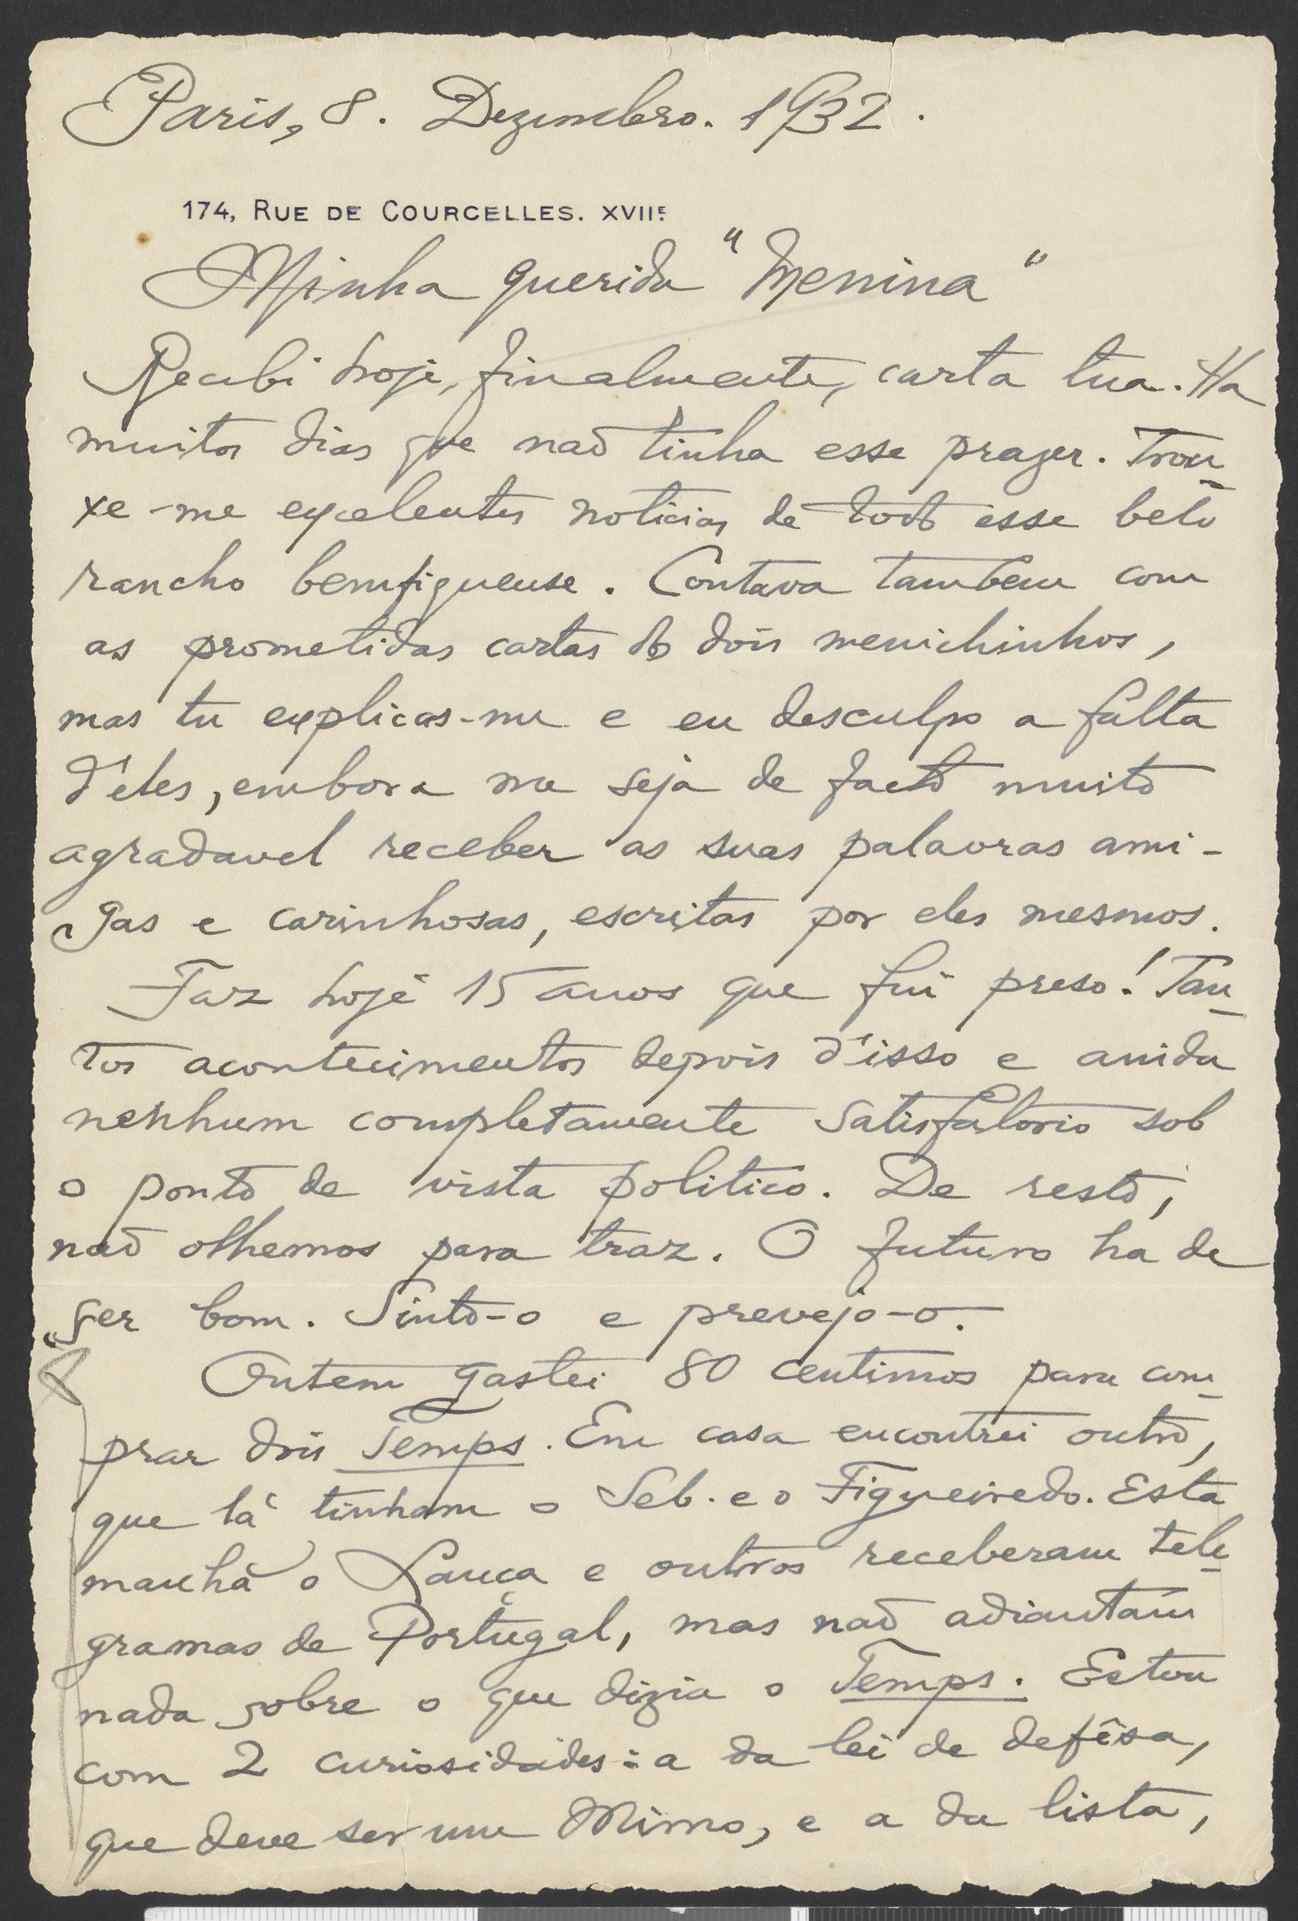 Paris, 8. Dezembro. 1932.
174, RUE DE COURCELLES. XVIIE
Minha querida "Menina"
Recebi hoje, finalmente, carta tua. Ha
muitos dias que não tinha esse prazer. Trou-
xe-me excelentes noticias de todo esse belo
rancho bemfiguense. Contava tambem com
as prometidas cartas dos dois menichinhos,
mas tu explicas-me e eu desculpo a falta
d'eles, embora me seja de facto muito
agradavel receber as suas palavras ami-
gas e carinhosas, escritas por eles mesmos.
Faz hoje 15 anos que fui preso! Tan-
tos acontecimentos depois d'isso e ainda
nenhum completamente satisfatorio sob
o ponto de vista politico. De resto,
não olhemos para traz. O futuro ha de
ser bom. Sinto-o e prevejo-o.
Ontem gastei 80 centimos para com-
prar dois Temps. Em casa encontrei outro,
que lá tinham o Seb. e o Figueiredo. Esta
manhã o Lança e outros receberam tele-
gramas de Portugal, mas não adiantam
nada sobre o que dizia o Temps. Estou
com 2 curiosidades: a da lei de defêsa,
que deve ser um Mimo, e a da lista,